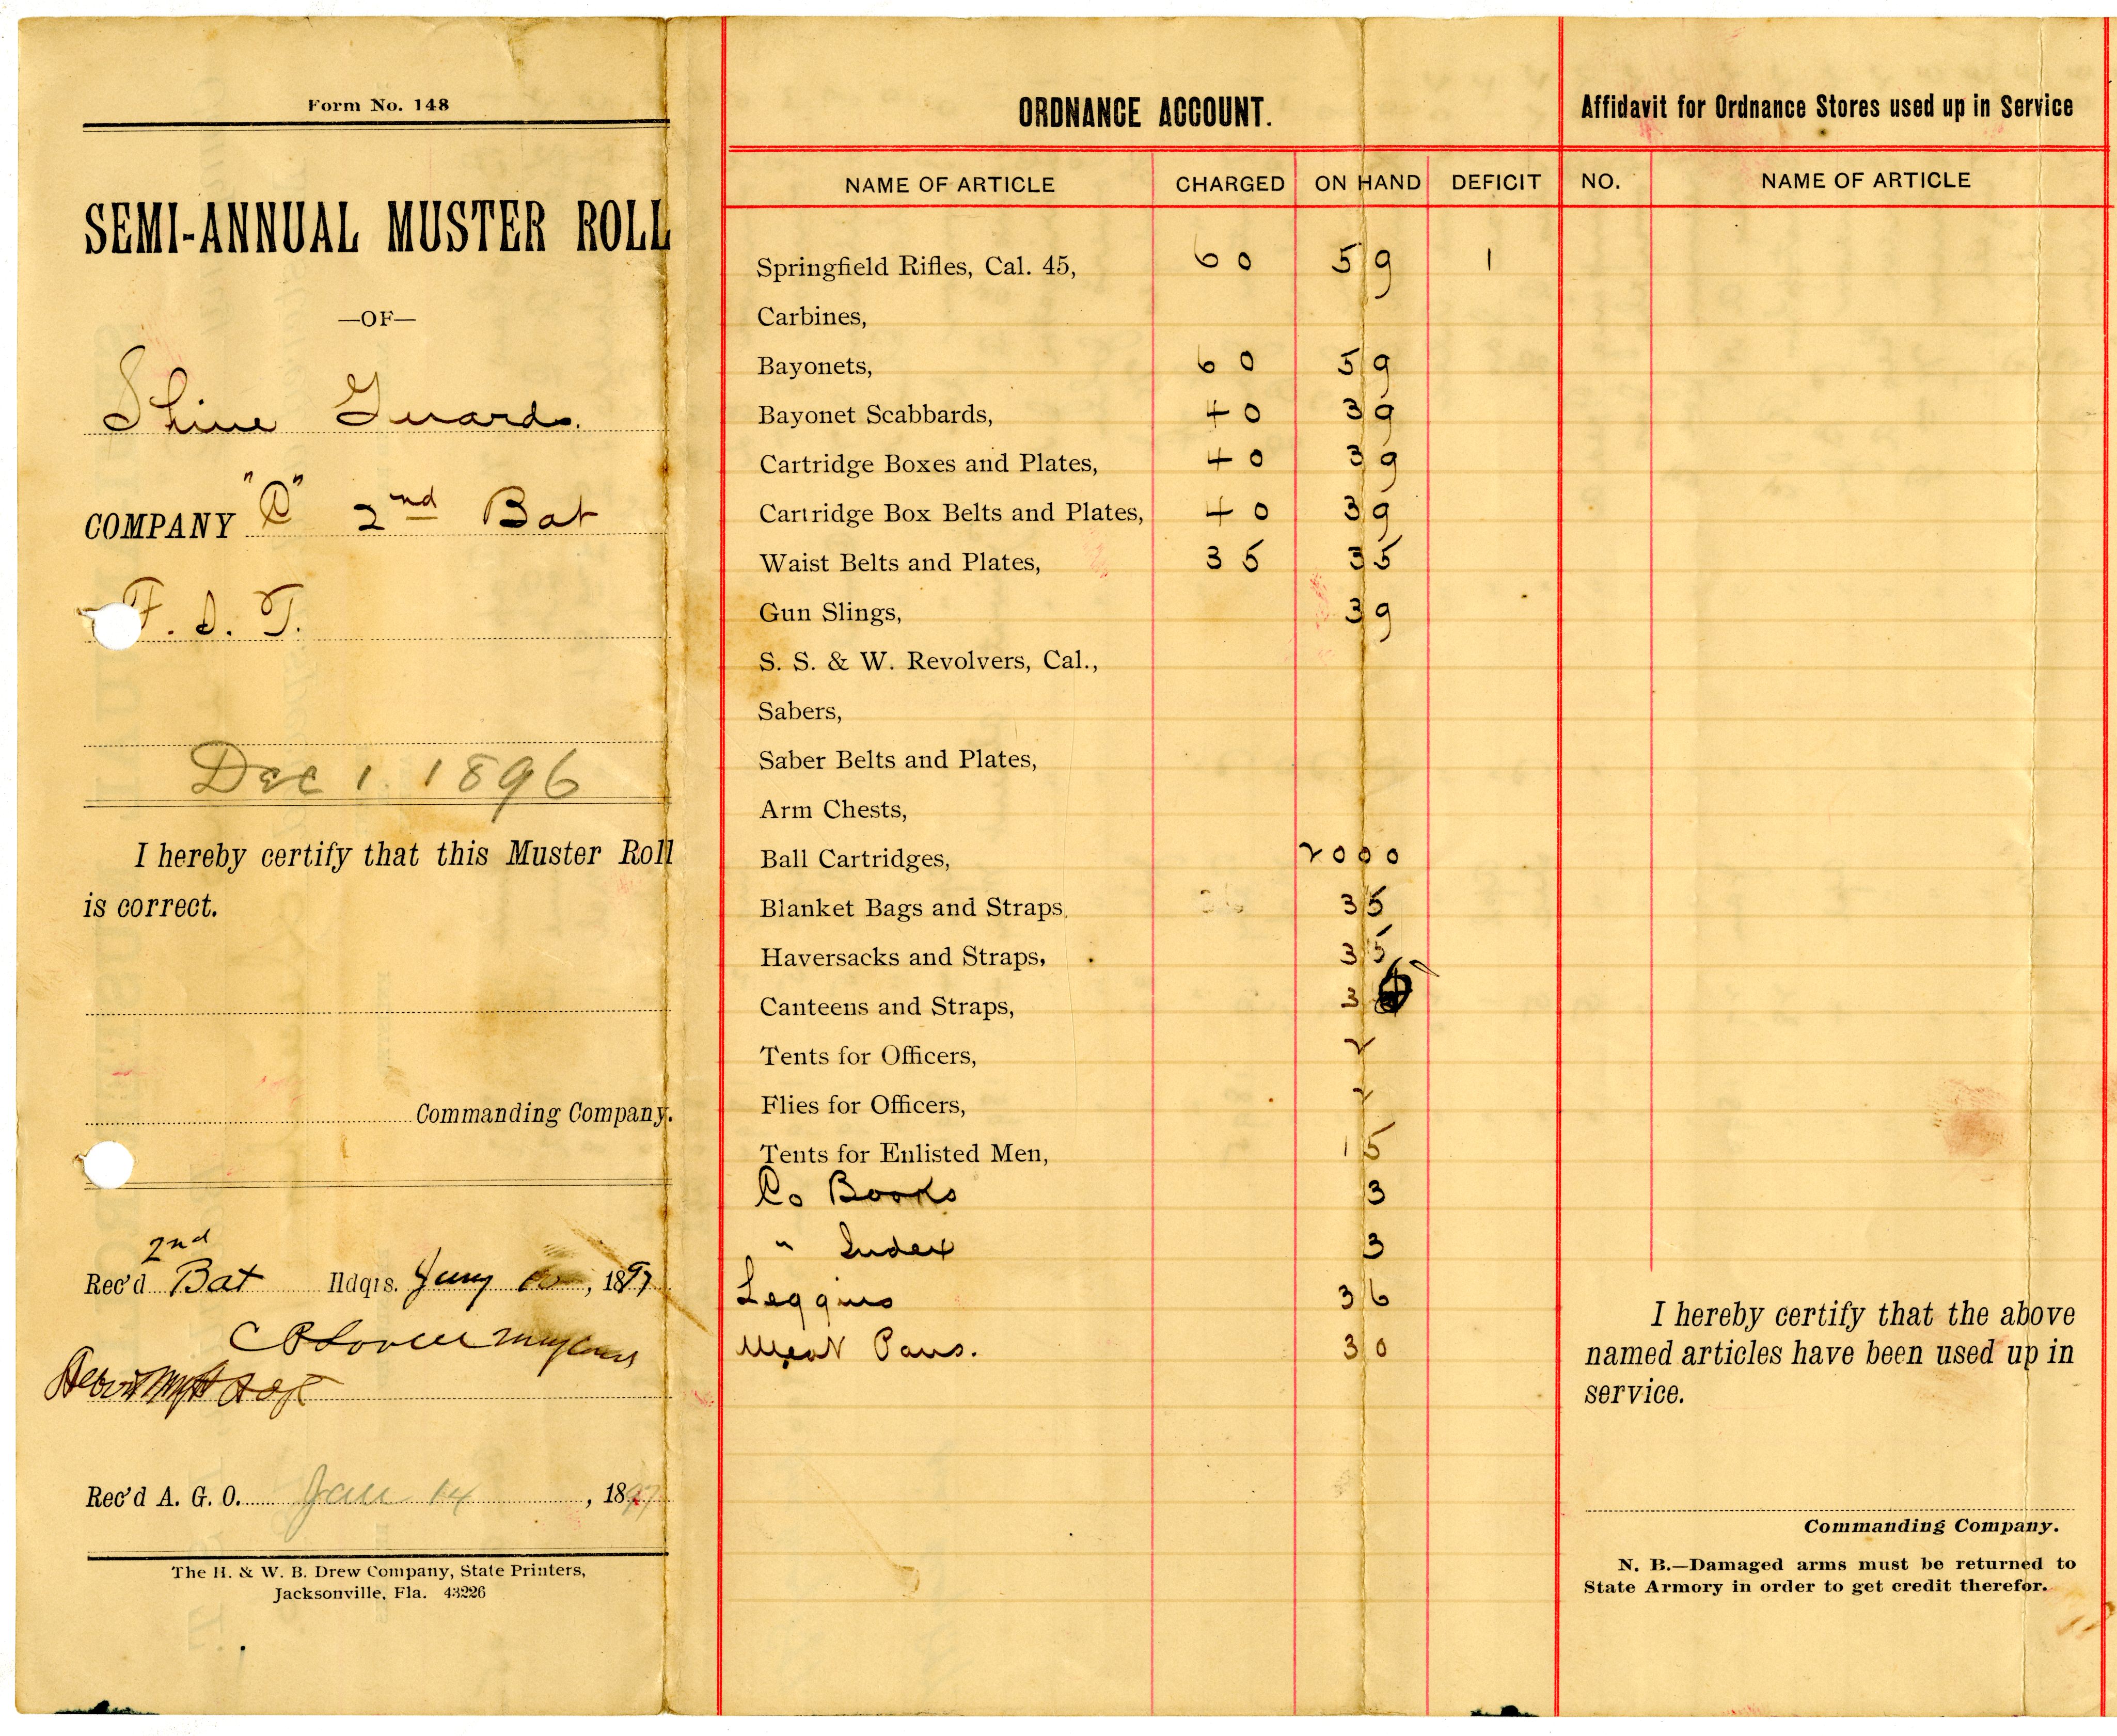 Form No. 148
SEMI-ANNUAL MUSTER ROLL
—OF—
Shine Guards.
COMPANY "C" 2nd Bat
F. S. T.
Dec 1. 1896
I hereby certify that this Muster Roll
is correct.
Commanding Company.
2nd
Rec'd Bat Hdqrs. Jany , 1897
Rec'd A. G. O. Jan 14 , 1897
The H. & W. B. Drew Company, State Printers,
Jacksonville, Fla. 43226
ORDNANCE ACCOUNT.
NAME OF ARTICLE CHARGED ON HAND DEFICIT
Springfield Rifles, Cal. 45, 60 59 1
Carbines,
Bayonets, 60 59
Bayonet Scabbards, 40 39
Cartridge Boxes and Plates, 40 39
Cartridge Box Belts and Plates, 40 39
Waist Belts and Plates, 35 35
Gun Slings, 39
S. S. & W. Revolvers, Cal.,
Sabers,
Saber Belts and Plates,
Arm Chests,
Ball Cartridges, 2000
Blanket Bags and Straps, 35
Haversacks and Straps, 35
Canteens and Straps, 3
Tents for Officers, 2
Flies for Officers, 2
Tents for Enlisted Men, 15
Co Books 3
" Index 3
Leggins 36
Meat Pans. 30
Affidavit for Ordnance Stores used up in Service
NO. NAME OF ARTICLE
I hereby certify that the above
named articles have been used up in
service.
Commanding Company.
N. B.—Damaged arms must be returned to
State Armory in order to get credit therefor.